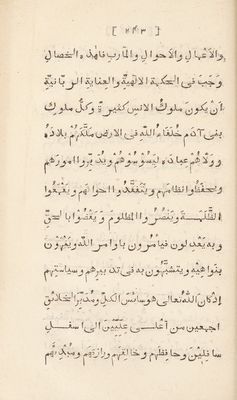 [ ٢٤٣ ]
والاعمال والاحوال والمآرب فلهذه الخصال
وجب فى الحكمة الالهية والعناية الربانية
ان يكون ملوك الانس كثيرة وكل ملوك
بنى آدم خلفاء الله فى الارض ملكهم بلاده
وولاهم عباده ليسوسوهم ويدبروا امورهم
ويحفظوا نظامهم ويتفقدوا احوالهم ويقمعوا
الظلمة وينصروا المظلوم ويقضوا بالحق
وبه يعدلون فيأمرون باوامر الله وينهون
بنواهيه ويتشبهون به فى تدبيرهم وسياستهم
اذ كان الله تعالى هو سائس الكل ومدبر الخلائق
اجمعين من اعلى عليين الى اسفل
سافلين وحافظهم وخالقهم ورازقهم ومبدئهم